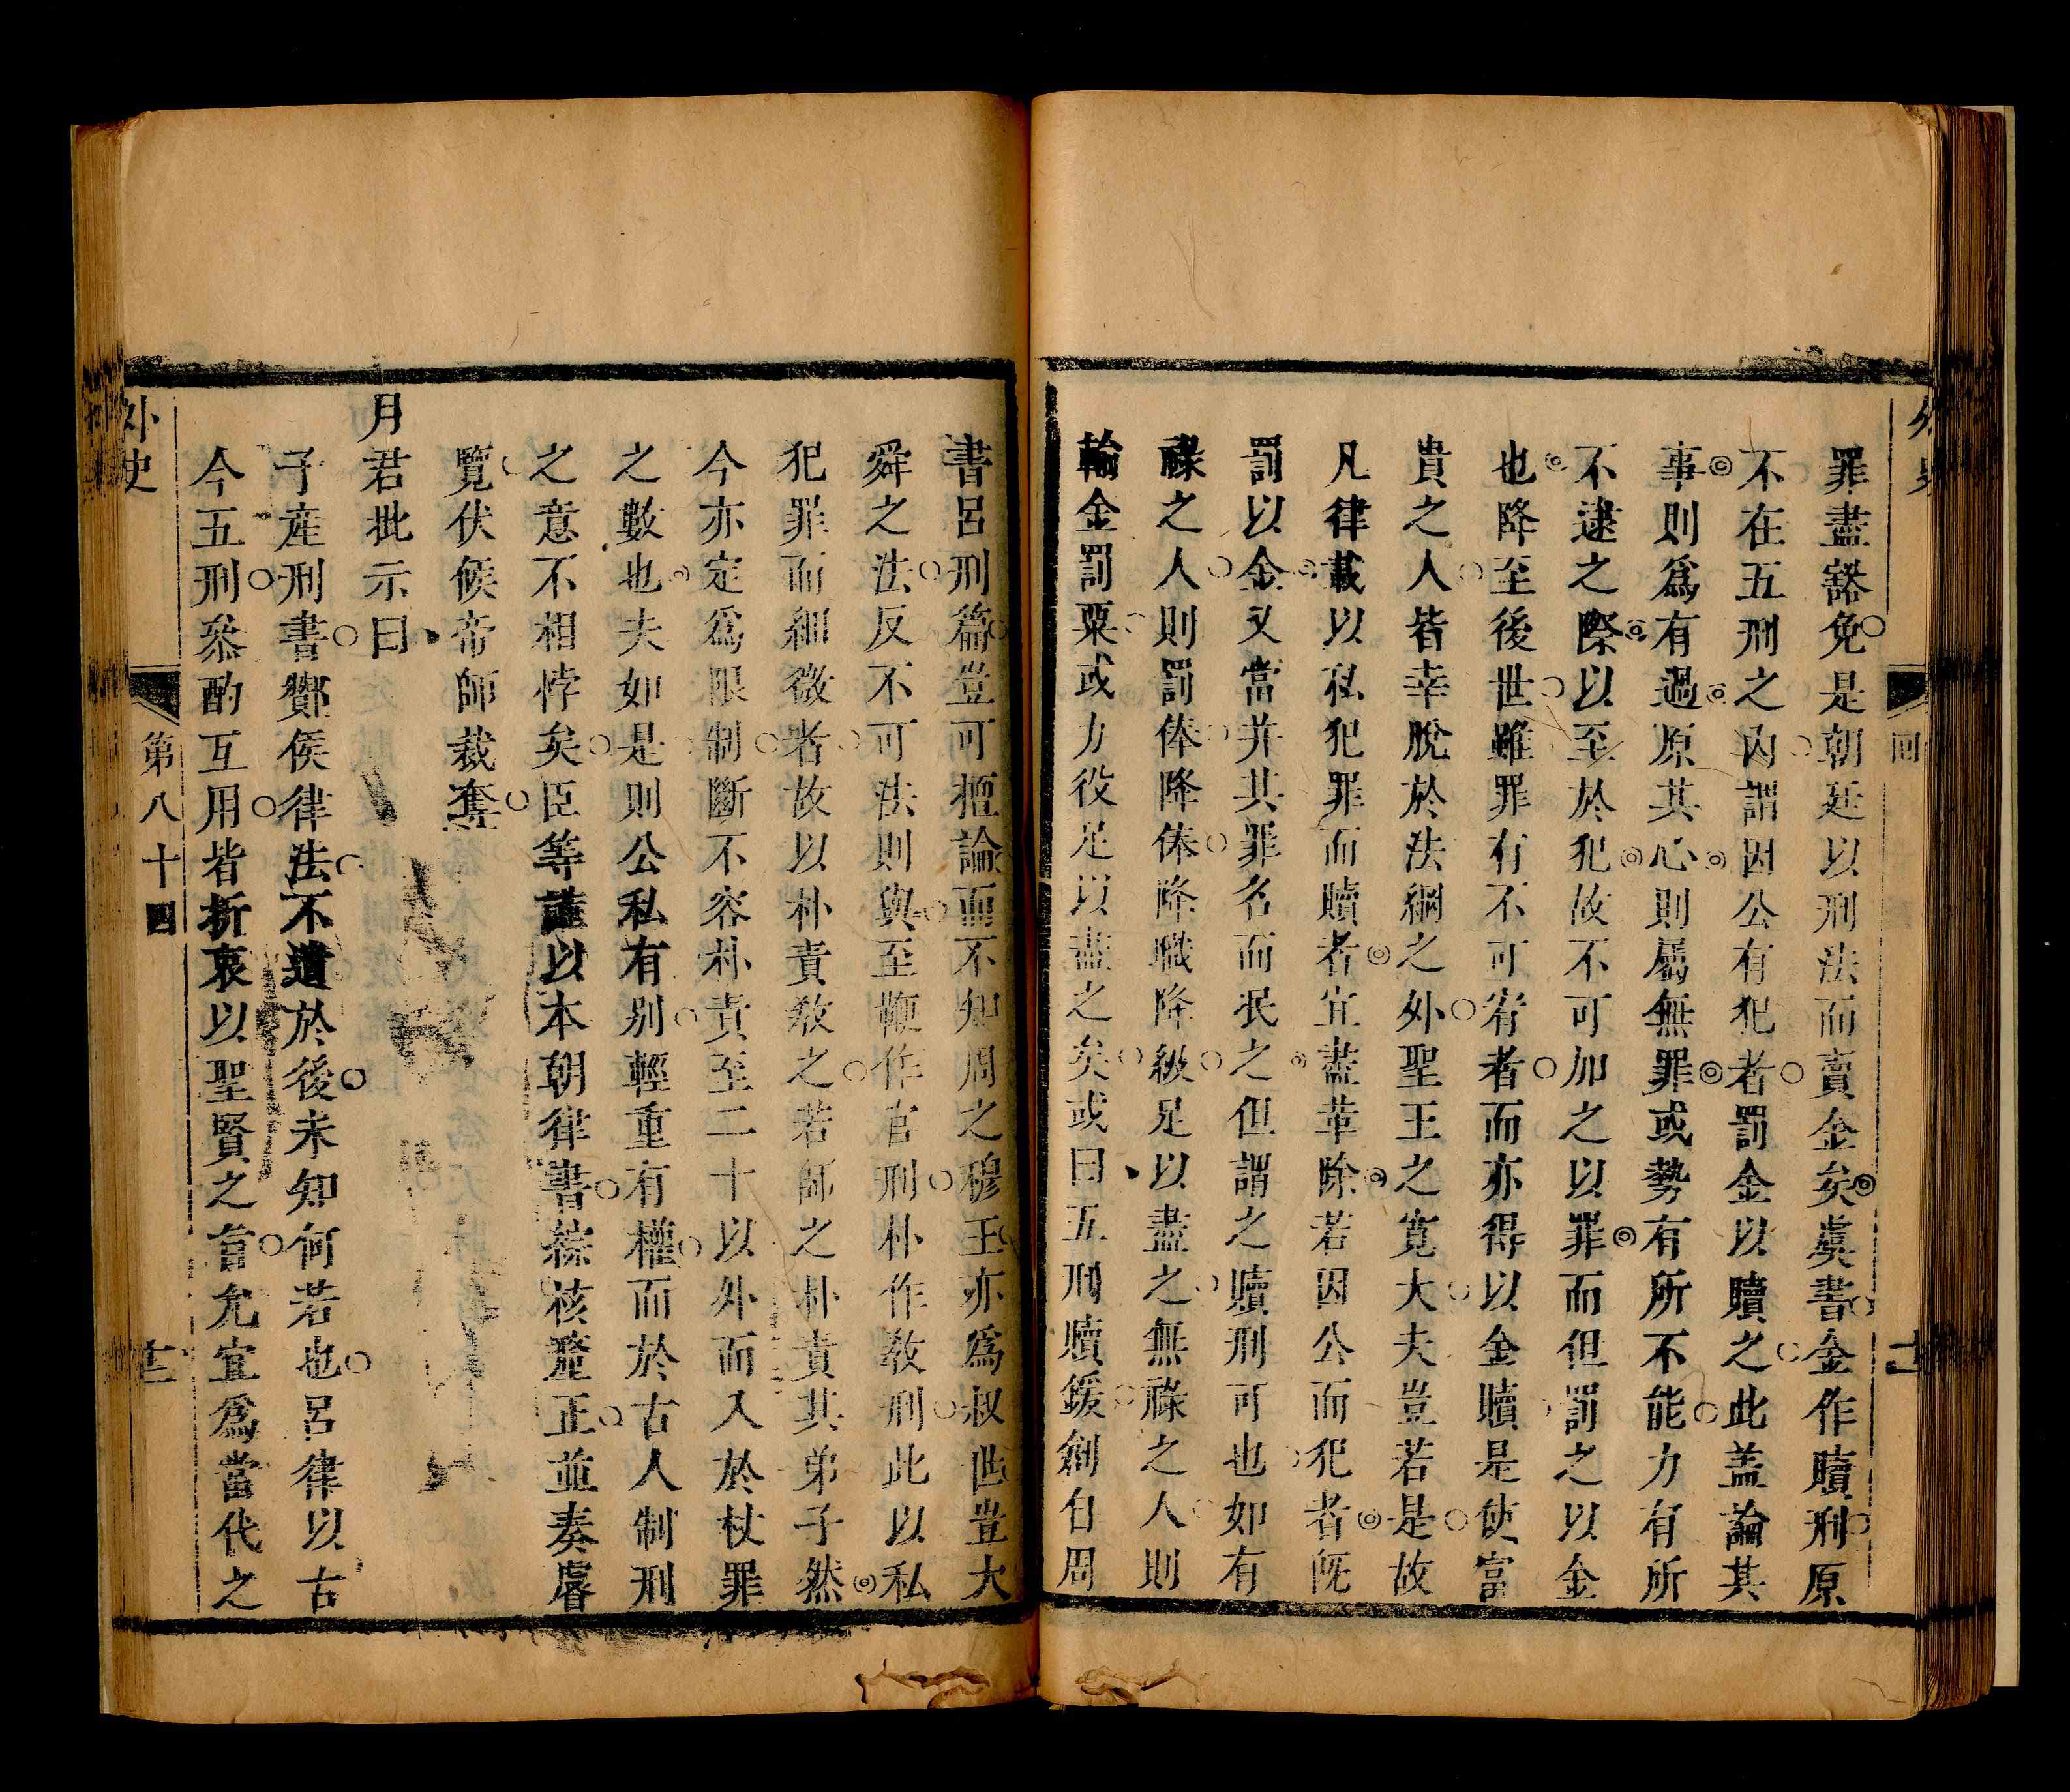 罪盡豁免是朝廷以刑法而賣金矣虞書金作贖刑原
不在五刑之內謂因公有犯者罰金以贖之此盖論其
事則爲有過原其心則屬無罪或勢有所不能力有所
不逮之際以至於犯故不可加之以罪而但罰之以金
也降至後世雖罪有不可宥者而亦得以金贖是使富
貴之人皆幸脫於法綱之外聖王之寛大夫豈若是故
凡律載以私犯罪而贖者宜盡革除若因公而犯者旣
罰以金又當并其罪名而泯之但謂之贖刑可也如有
祿之人則罰俸降俸降職降級足以盡之無祿之人則
輸金罰粟或力役足以盡之矣或曰五刑贖鍰創自周
書呂刑篇豈可擅論而不知周之穆王亦爲叔世豈大
舜之法反不可法則與至鞭作官刑朴作教刑此以私
犯罪而細微者故以朴責教之若師之朴責其弟子然
今亦定爲限制斷不容朴責至二十以外而入於杖罪
之數也夫如是則公私有别輕重有權而於古人制刑
之意不相悖矣臣等謹以本朝律書綜核釐正並奏睿
覽伏候帝師裁奪
月君批示曰
子產刑書鄼侯律法不遺於後未知何若也呂律以古
今五刑叅酌互用皆折衷以聖賢之旨允宜爲當代之
外史
第八十四